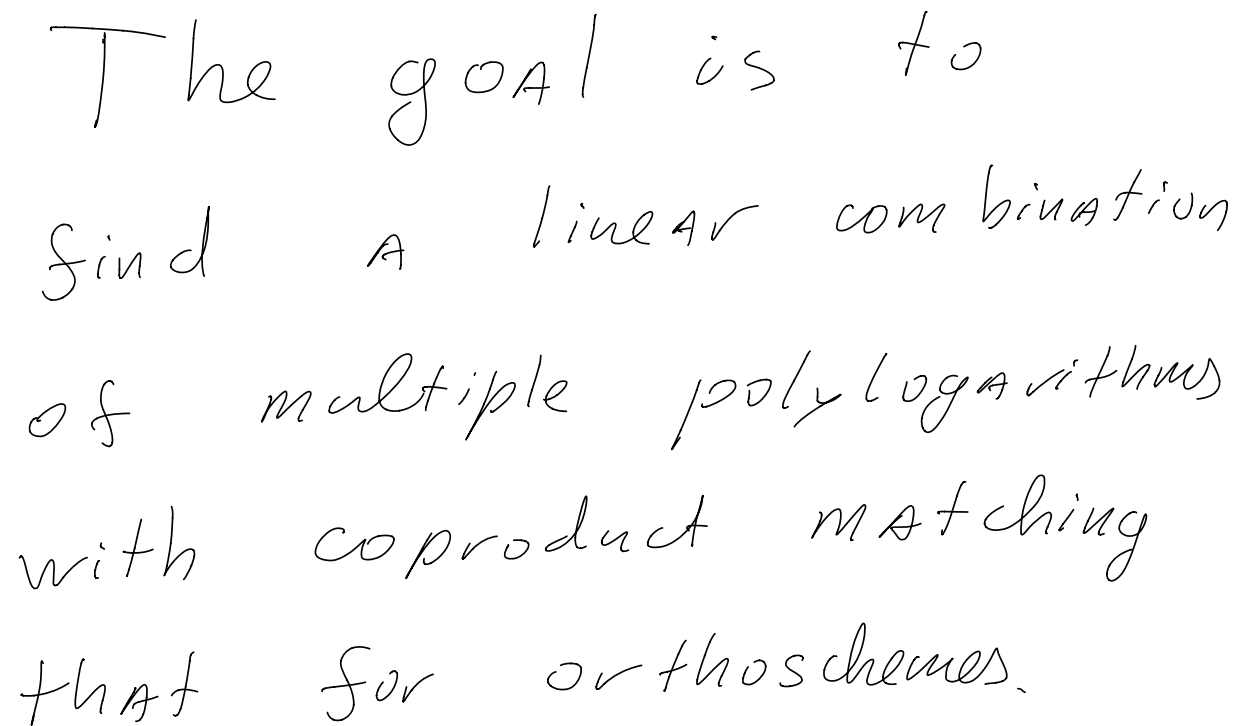 The goal is to
find a linear combination
of multiple polylogarithms
with coproduct matching
that for orthoschemes.